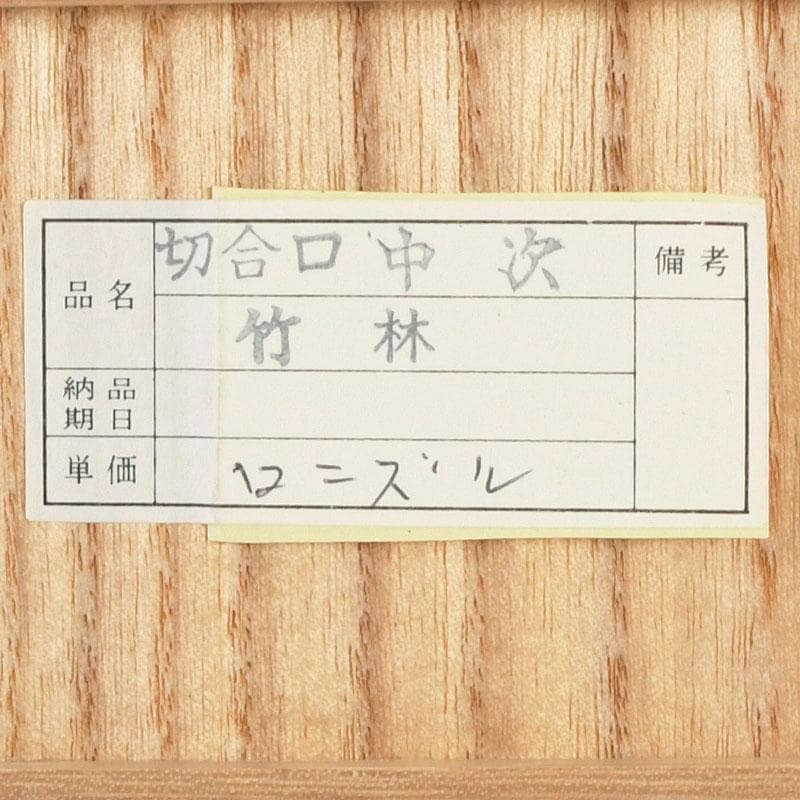 品名 切合口中次 備考
竹林
納品期日
単価 ロニズル